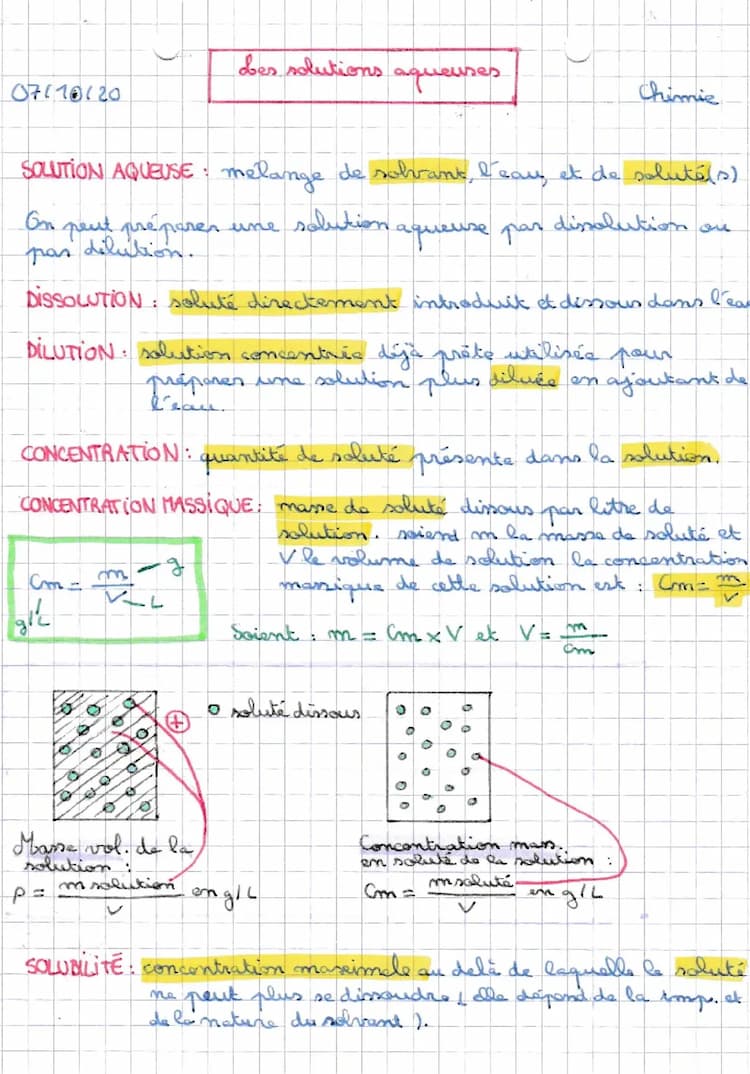 Les solutions aqueuses
07/10/20
Chimie
SOLUTION AQUEUSE : mélange de solvant, l'eau, et de soluté(s)
On peut préparer une solution aqueuse par dissolution ou
par dilution.
DISSOLUTION : soluté directement introduit et dissous dans l'eau
DILUTION : solution concentrée déjà prête utilisée pour
préparer une solution plus diluée en ajoutant de
l'eau.
CONCENTRATION : quantité de soluté présente dans la solution.
CONCENTRATION MASSIQUE : masse de soluté dissous par litre de
solution. soiend m la masse de soluté et
V le volume de solution la concentration
massique de cette solution est : Cm = m/V
Cm = m/V
g
L
g/L
Soient : m = Cm x V et V = m/Cm
+
soluté dissous
Masse vol. de la
solution :
ρ = m solution/V en g/L
Concentration mass.
en soluté de la solution :
Cm = m soluté/V en g/L
SOLUBILITÉ : concentration maximale au delà de laquelle le soluté
ne peut plus se dissoudre ( elle dépend de la tmp. et
de la nature du solvant ).